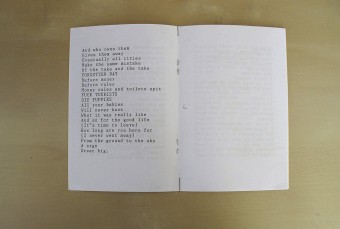 And who owns them
Gives them away
Eventually all cities
Make the same mistake
Of the take and the take
FORGOTTEN BAY
Before money
Before rules
Money rules and toilets spit
FUCK TOURISTS
DIE YUPPIES
All your babies
Will never know
What it was really like
And so for the good life
(It's time to leave)
How long are you here for
(I never went away)
From the ground to the sky
A sign
Great Big.